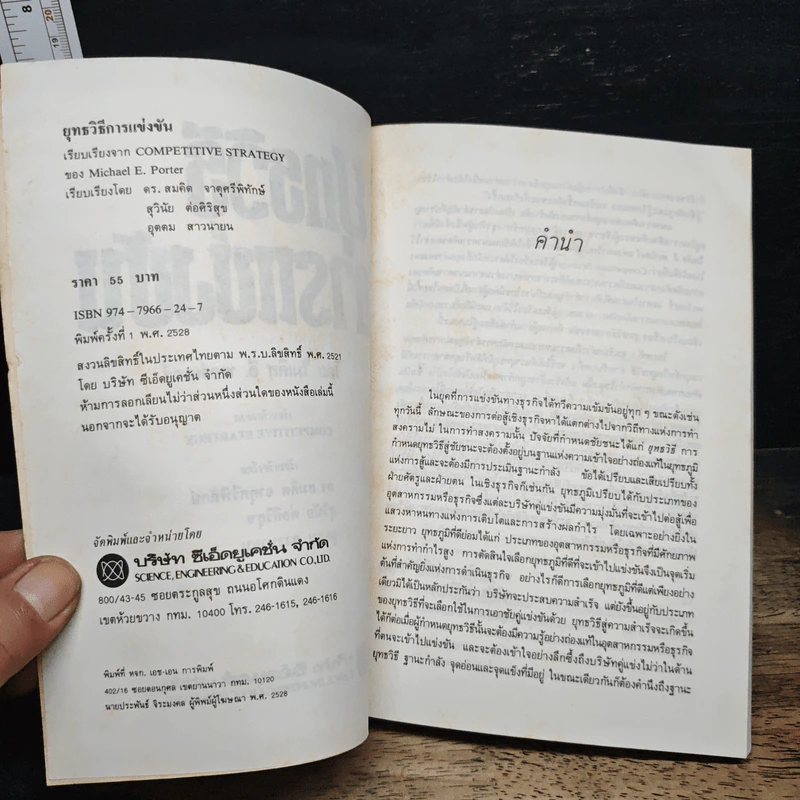 ยุทธวิธีการแข่งขัน
เรียบเรียงจาก COMPETITIVE STRATEGY
ของ Michael E. Porter
เรียบเรียงโดย ดร. สมคิด จาตุศรีพิทักษ์
สุวินัย ต่อศิริสุข
อุตตม สาวนายน
ราคา 55 บาท
ISBN 974-7966-24-7
พิมพ์ครั้งที่ 1 พ.ศ. 2528
สงวนลิขสิทธิ์ในประเทศไทยตาม พ.ร.บ.ลิขสิทธิ์ พ.ศ. 2521
โดย บริษัท ซีเอ็ดยูเคชั่น จำกัด
ห้ามการลอกเลียนไม่ว่าส่วนหนึ่งส่วนใดของหนังสือเล่มนี้
นอกจากจะได้รับอนุญาต
จัดพิมพ์และจำหน่ายโดย
บริษัท ซีเอ็ดยูเคชั่น จำกัด
SCIENCE, ENGINEERING & EDUCATION CO., LTD.
800/43-45 ซอยตระกูลสุข ถนนอโศกดินแดง
เขตห้วยขวาง กทม. 10400 โทร. 246-1615, 246-1616
พิมพ์ที่ หจก. เอช-เอน การพิมพ์
402/16 ซอยดอนกุศล เขตยานนาวา กทม. 10120
นายประพันธ์ จิระมงคล ผู้พิมพ์ผู้โฆษณา พ.ศ. 2528
คำนำ
ในยุคที่การแข่งขันทางธุรกิจได้ทวีความเข้มข้นอยู่ทุก ๆ ขณะดังเช่น
ทุกวันนี้ ลักษณะของการต่อสู้เชิงธุรกิจหาได้แตกต่างไปจากวิถีทางแห่งการทำ
สงครามไม่ ในการทำสงครามนั้น ปัจจัยที่กำหนดชัยชนะได้แก่ ยุทธวิธี การ
กำหนดยุทธวิธีสู่ชัยชนะจะต้องตั้งอยู่บนฐานแห่งความเข้าใจอย่างถ่องแท้ในยุทธภูมิ
แห่งการสู้และจะต้องมีการประเมินฐานะกำลัง ข้อได้เปรียบและเสียเปรียบทั้ง
ฝ่ายศัตรูและฝ่ายตน ในเชิงธุรกิจก็เช่นกัน ยุทธภูมิเปรียบได้กับประเภทของ
อุตสาหกรรมหรือธุรกิจซึ่งแต่ละบริษัทคู่แข่งขันมีความมุ่งมั่นที่จะเข้าไปต่อสู้เพื่อ
แสวงหาหนทางแห่งการเติบโตและการสร้างผลกำไร โดยเฉพาะอย่างยิ่งใน
ระยะยาว ยุทธภูมิที่ดีย่อมได้แก่ ประเภทของอุตสาหกรรมหรือธุรกิจที่มีศักยภาพ
แห่งการทำกำไรสูง การตัดสินใจเลือกยุทธภูมิที่ดีที่จะเข้าไปแข่งขันจึงเป็นจุดเริ่ม
ต้นที่สำคัญยิ่งแห่งการดำเนินธุรกิจ อย่างไรก็ดีการเลือกยุทธภูมิที่ดีแต่เพียงอย่าง
เดียวมิได้เป็นหลักประกันว่า บริษัทจะประสบความสำเร็จ แต่ยังขึ้นอยู่กับประเภท
ของยุทธวิธีที่จะเลือกใช้ในการเอาชัยคู่แข่งขันด้วย ยุทธวิธีสู่ความสำเร็จจะเกิดขึ้น
ได้ก็ต่อเมื่อผู้กำหนดยุทธวิธีนั้นจะต้องมีความรู้อย่างถ่องแท้ในอุตสาหกรรมหรือธุรกิจ
ที่ตนจะเข้าไปแข่งขัน และจะต้องเข้าใจอย่างลึกซึ้งถึงบริษัทคู่แข่งไม่ว่าในด้าน
ยุทธวิธี ฐานะกำลัง จุดอ่อนและจุดแข็งที่มีอยู่ ในขณะเดียวกันก็ต้องคำนึงถึงฐานะ